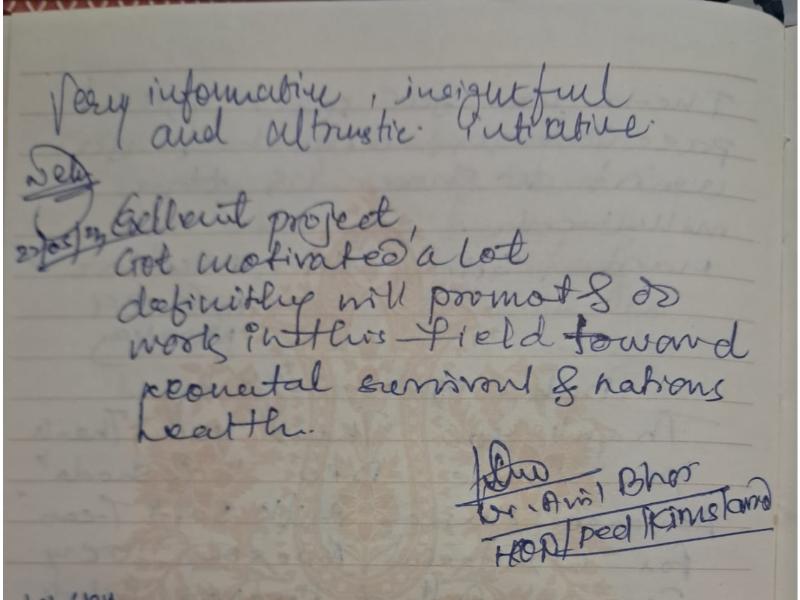 Very informative, insightful
and altrustic intiative.
Excellent project,
Got motivated a lot
definitley will promot & do
work in this field toward
neonatal survival & nations
health.
Dr. Anil Bhor
HOD/Ped/Kims